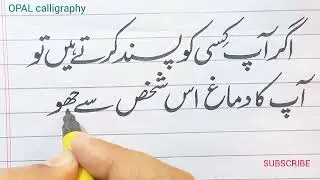 OPAL calligraphy
اگر آپ کسی کو پسند کرتے ہیں تو
آپ کا دماغ اس شخص سے جھو
SUBSCRIBE